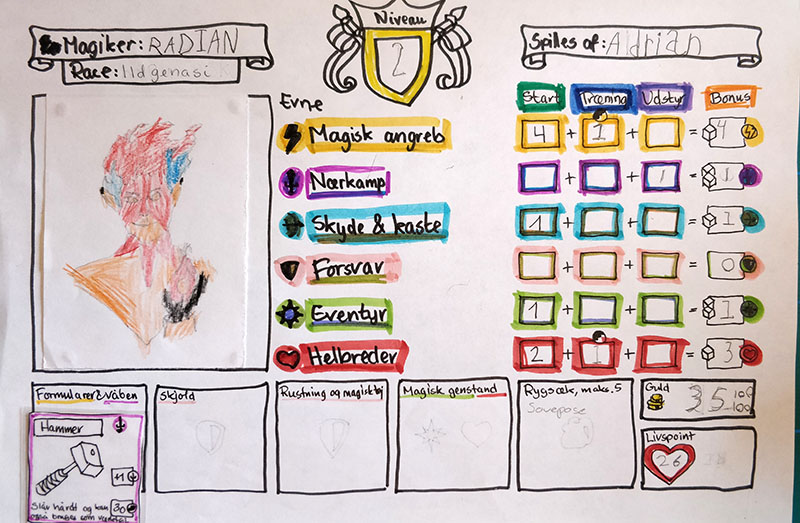 Niveau
2
Magiker: RADIAN
Race: Ildgenasi
Spilles af: Aldrian
Evne
Start Træning Udstyr Bonus
Magisk angreb 4 + 1 + = 4
Nærkamp + + 1 = 1
Skyde & kaste 1 + + = 1
Forsvar + + = 0
Eventyr 1 + + = 1
Helbreder 2 + 1 + = 3
Formularer & våben
Skjold
Rustning og magisk
Magisk genstand
Rygsæk, maks. 5
Sovepose
Guld
35
100
100
Livspoint
26
Hammer
+1
30
Slår hårdt og kan
også bruges som værktøj